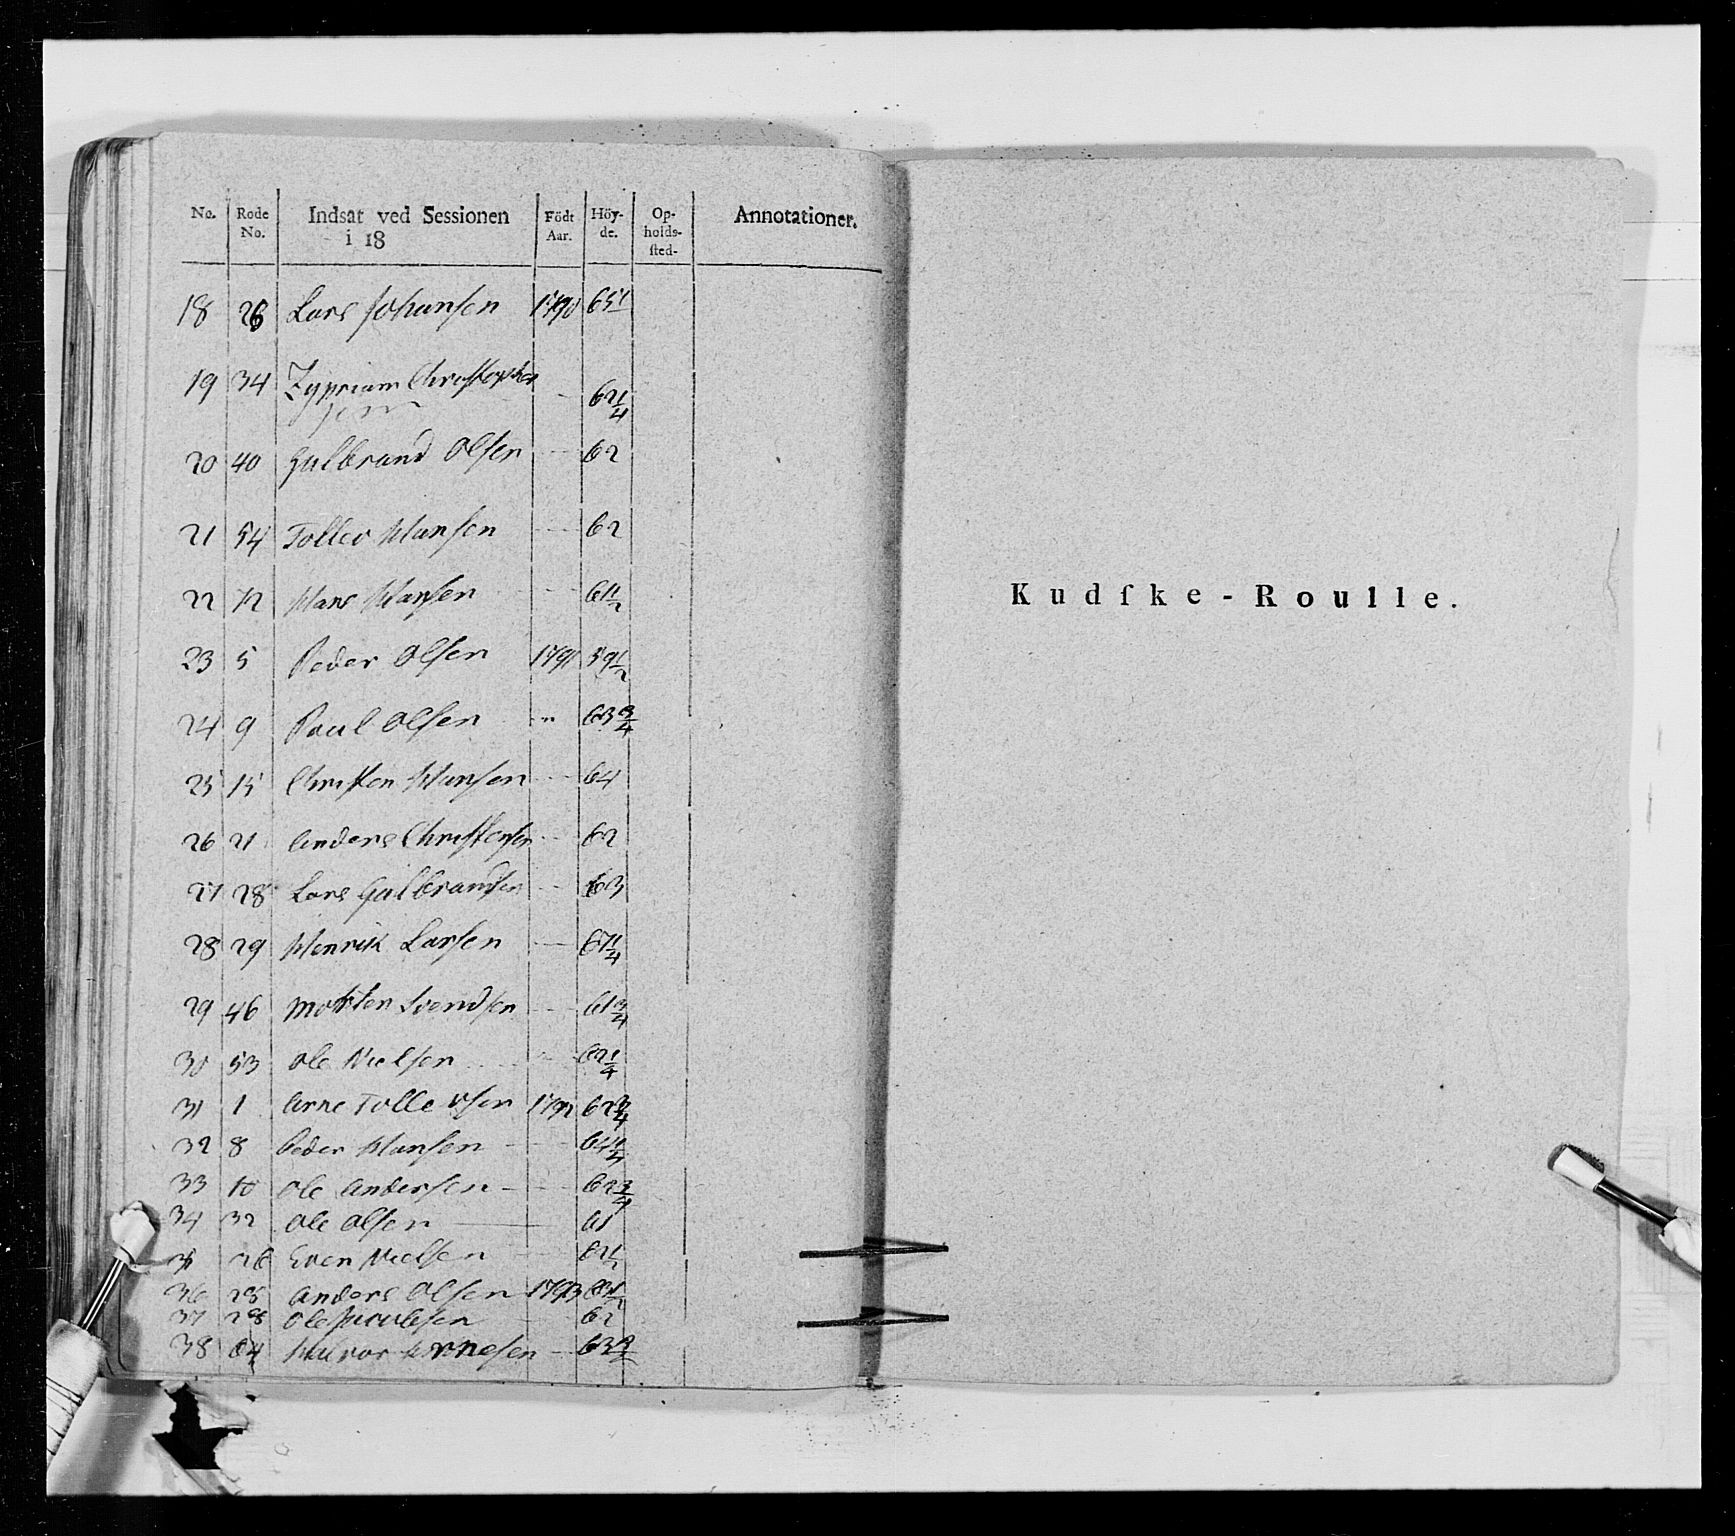 No. Rode No. Indsat ved Sessionen i 18 Födt Aar. Höy-de. Op-holds-sted- Annotationer.
18 26 Lars Johansen 1790 65 1/
19 34 Zyprian Christophersen — 62 1/4
20 40 Gulbrand Olsen — 62
21 54 Tollev Hansen — 62
22 72 Hans Hansen — 61 1/2
23 5 Peder Olsen 1791 59 1/2
24 9 Poul Olsen — 63 3/4
25 15 Christen Hansen — 64
26 21 Anders Christensen — 62
27 28 Lars Gulbrandsen — 63
28 29 Henrik Larsen — 67 1/4
29 46 Morten Svendsen — 61 3/4
30 53 Ole Nielsen — 62 1/4
31 1 Arne Tollevsen 1792 62 3/4
32 8 Peder Hansen — 64 1/4
33 10 Ole Andersen — 62 3/4
34 32 Ole Olsen — 61
35 26 Even Nielsen — 62 1/2
36 25 Anders Olsen 1793 63 1/2
37 28 Ole Jacobsen — 62
38 64 Halvor Arnesen — 63
Kudſke-Roulle.